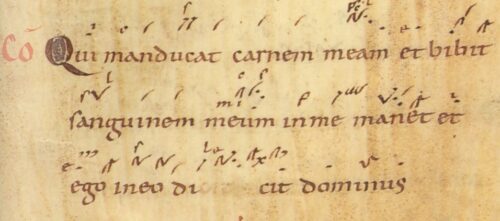 Cō Qui manducat carnem meam et bibit
sanguinem meum in me manet et
ego in eo di cit dominus